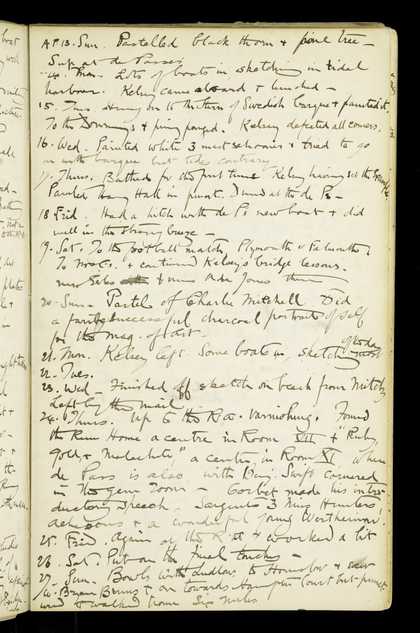 AP. 13. Sun. Pastelled black thorn & pine tree -
Sup at de Passes
14. Mon. Lots of boats in sketching in tidal
harbour. Kelsey came aboard & lunched -
15. Tues Hung on to the stern of Swedish barque & painted it
To the Downings & ping ponged. Kelsey defeated all comers.
16. Wed. Painted white 3 mast schooner & tried to go
on with barque but tide contrary
17. Thurs. Bathed for the first time Kelsey having set the
Painted Harry Hall in punt. Dined at the de Ps -
18 Frid. Had a hitch with de Ps new boat & did
well in the strong breeze -
19. Sat. To the football match Plymouth v Falmouth,
To & continued Kelsey's bridge lessons.
Jones
20. Sun - Pastel of Charlie Mitchell Did
a fairly successful charcoal portrait of self
for the Mag. of Art
21. Mon. Kelsey left Some boats in sketching
22. Tues.
23. Wed - Finished off sketch on beach from Mitch
Left by the mail
24. Thurs. Up to the R.A. Varnishing. Found
the Run Home a centre in Room VII & "Ruby
Gold & Malachite" a centre, in Room XI where
de Pass is also with Swift cornered
in the Gem Room - Gorbet made his intro-
ductory speech. Sargents 3 Miss Hunters
delicious & a wonderful young Wertheimer.
25. Frid. Again at the R.A. & worked a bit
26. Sat. Put on the final touches -
27. Sun. Bowls with to Hounslow &
& on towards Hampton Court but
& walked home Six miles